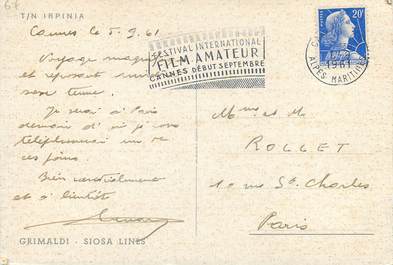 67
T/N IRPINIA
Cannes le 5.9.61
Voyage magnifique
et reposant sur
terre.
Je serai à Paris
demain d'où je vous
téléphonerai un de
ces jours.
Bien cordialement
et à bientôt
GRIMALDI - SIOSA LINES
FESTIVAL INTERNATIONAL
FILM AMATEUR
CANNES DÉBUT SEPTEMBRE
20F
1961
ALPES MARITIMES
Mme et Mr
ROLLET
rue St. Charles
Paris